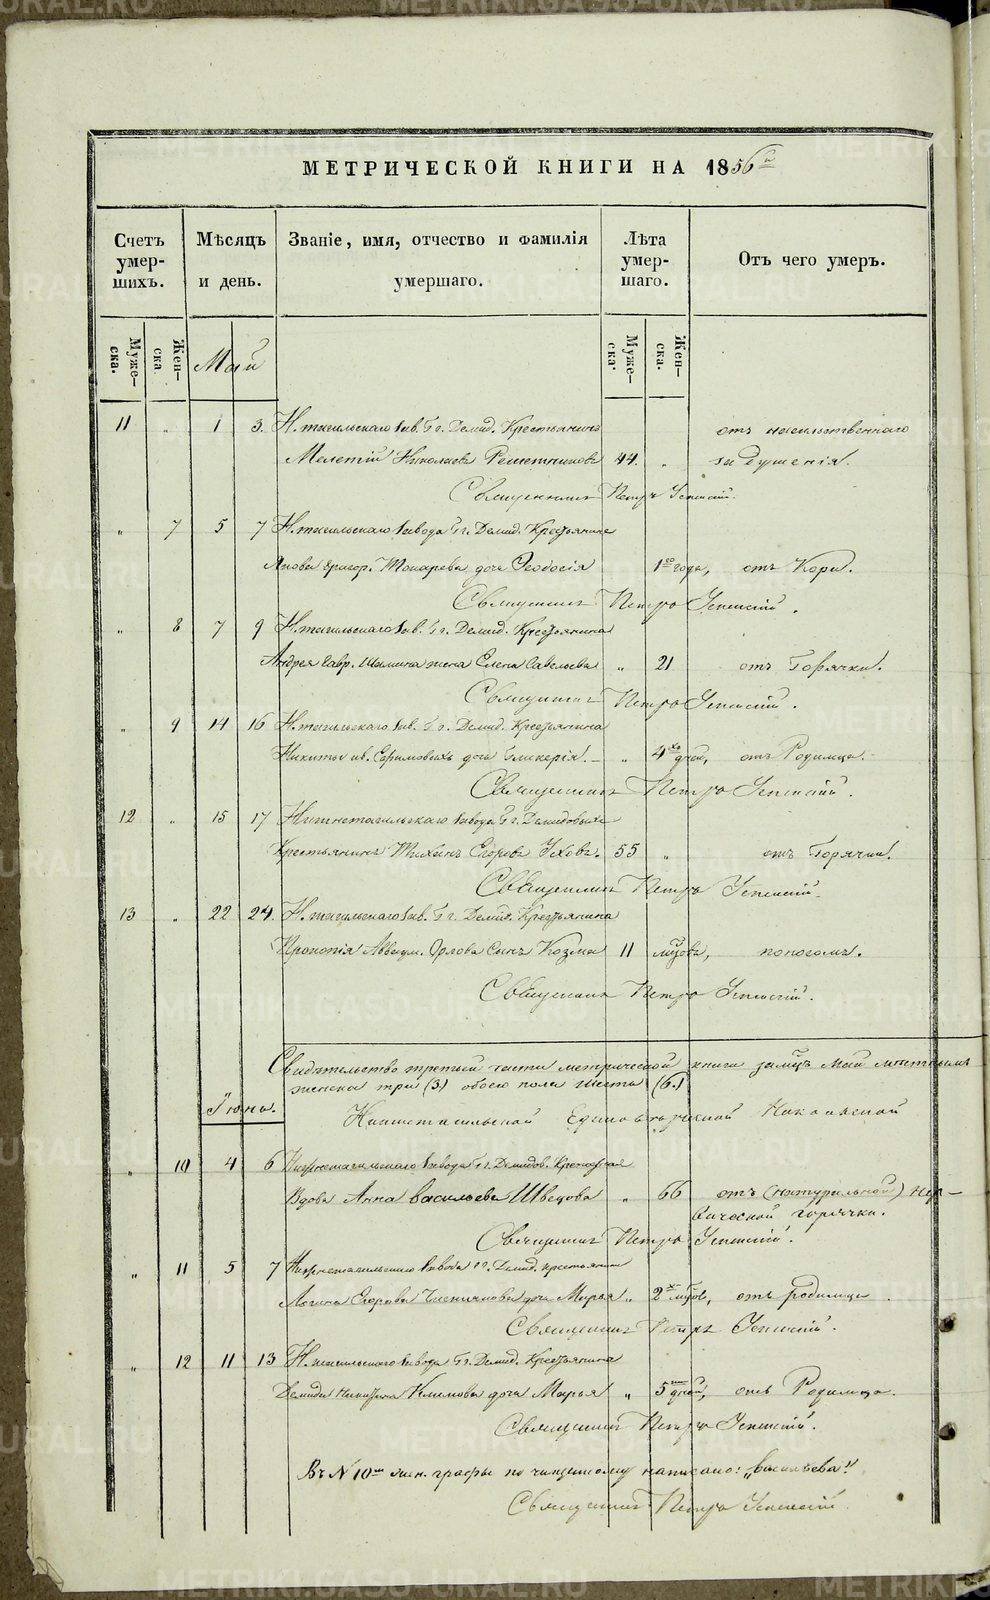 МЕТРИЧЕСКОЙ КНИГИ НА 1856й
Счетъ умер- шихъ.
Мѣсяцъ и день.
Званіе, имя, отчество и фамилія умершаго.
Лѣта умер- шаго.
Отъ чего умеръ.
Муже- ска.
Жен- ска
Май
Муже- ска.
Жен- ска.
11 " 1 3. Н. тагильскаго зав. Гг. Демид. Крестьянинъ отъ насильственнаго
Мелетій Николаевъ Решетниковъ 44. " задушенія.
Священникъ Петръ Успенскій.
" 7 5 7 Н. тагильскаго завода Гг. Демид. Крестьянина
Якова Григор. Токарева дочь Ѳеодосія 1го года, отъ Кори.
Священникъ Петръ Успенскій.
" 8 7 9 Н. тагильскаго зав. Гг. Демид. Крестьянина
Андрея Гавр. Шамина жена Елена Савельева " 21 отъ Горячки.
Священникъ Петръ Успенскій.
" 9 14 16 Н. тагильскаго зав. Гг. Демид. Крестьянина
Никиты ив. Ефимовыхъ дочь Гликерія. " 4хъ дней, отъ Родимца.
Священникъ Петръ Успенскій.
12 " 15 17 Нижнетагильскаго завода Гг. Демидовыхъ
Крестьянинъ Тихонъ Егоровъ Уховъ. 55 " отъ Горячки.
Священникъ Петръ Успенскій.
13 " 22 24. Н. тагильскаго зав. Гг. Демид. Крестьянина
Прокопія Аввакум. Орлова Сынъ Козма 11 мцовъ, поносомъ.
Священникъ Петръ Успенскій.
Свидѣтельство третьей части метрической книги за мцъ Май
женска три (3) обоего пола шесть (6.)
Июнь. Нижнетагильской Единовѣрческой Николаевской
" 10 4 6 Нижнетагильскаго завода Гг. Демидов. Крестьянская
Вдова Анна Васильева Шведова " 66 отъ (натуральной) нер-
вической горячки.
Священникъ Петръ Успенскій.
" 11 5 7 Нижнетагильскаго завода гг. Демид. крестьянина
Логина Егорова дочь Марья " 2хъ мцовъ, отъ родимца.
Священникъ Петръ Успенскій.
" 12 11 13 Н. тагильскаго завода Гг. Демид. Крестьянина
Демида Никитина Климова дочь Марья " 5ти дней, отъ Родимца.
Священникъ Петръ Успенскій.
Въ N 10мъ жен. графы по чищеному написано: „Васильева".
Священникъ Петръ Успенскій.
METRIKI.GASO-URAL.RU